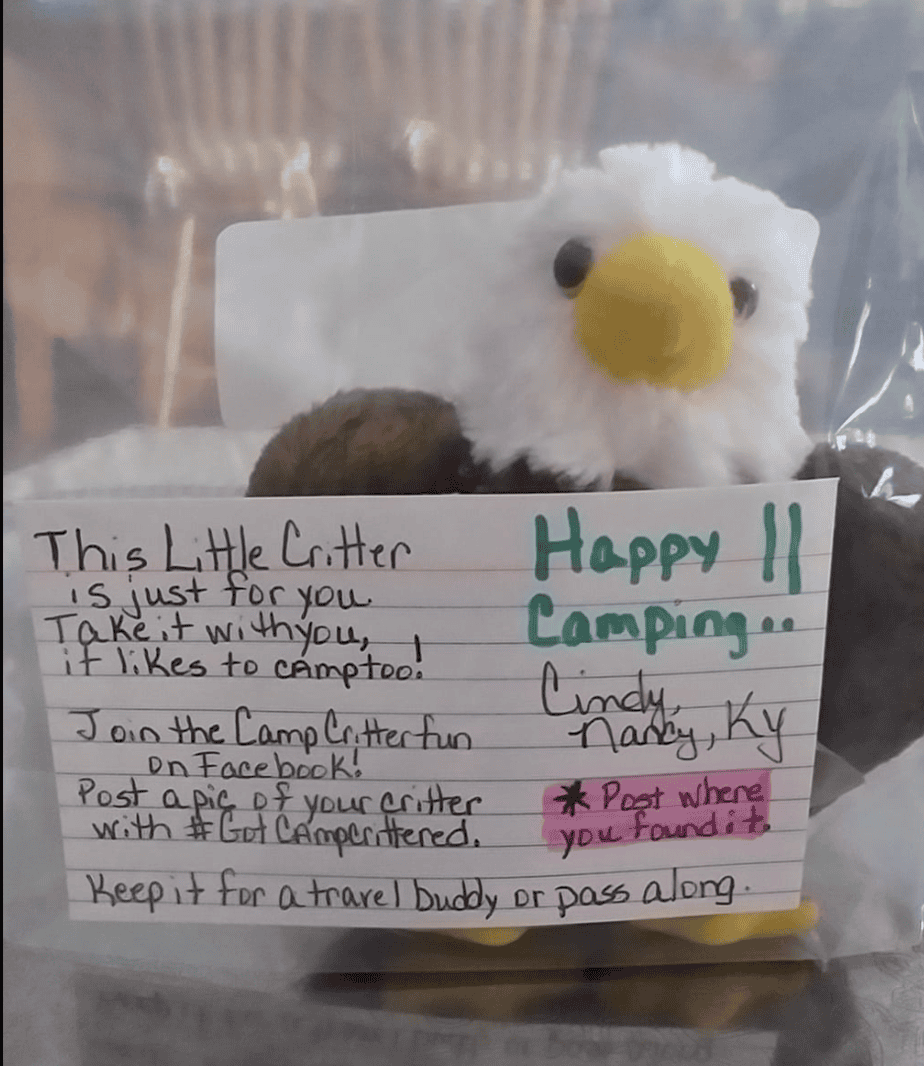 This Little Critter
is just for you
Take it with you,
it likes to camp too!
Join the Camp Critter fun
on Facebook!
Post a pic of your critter
with #GotCAmpcrittered.
Keep it for a travel buddy or pass along.
Happy !!
Camping..
Cindy,
Nancy, Ky
* Post where
you found it.